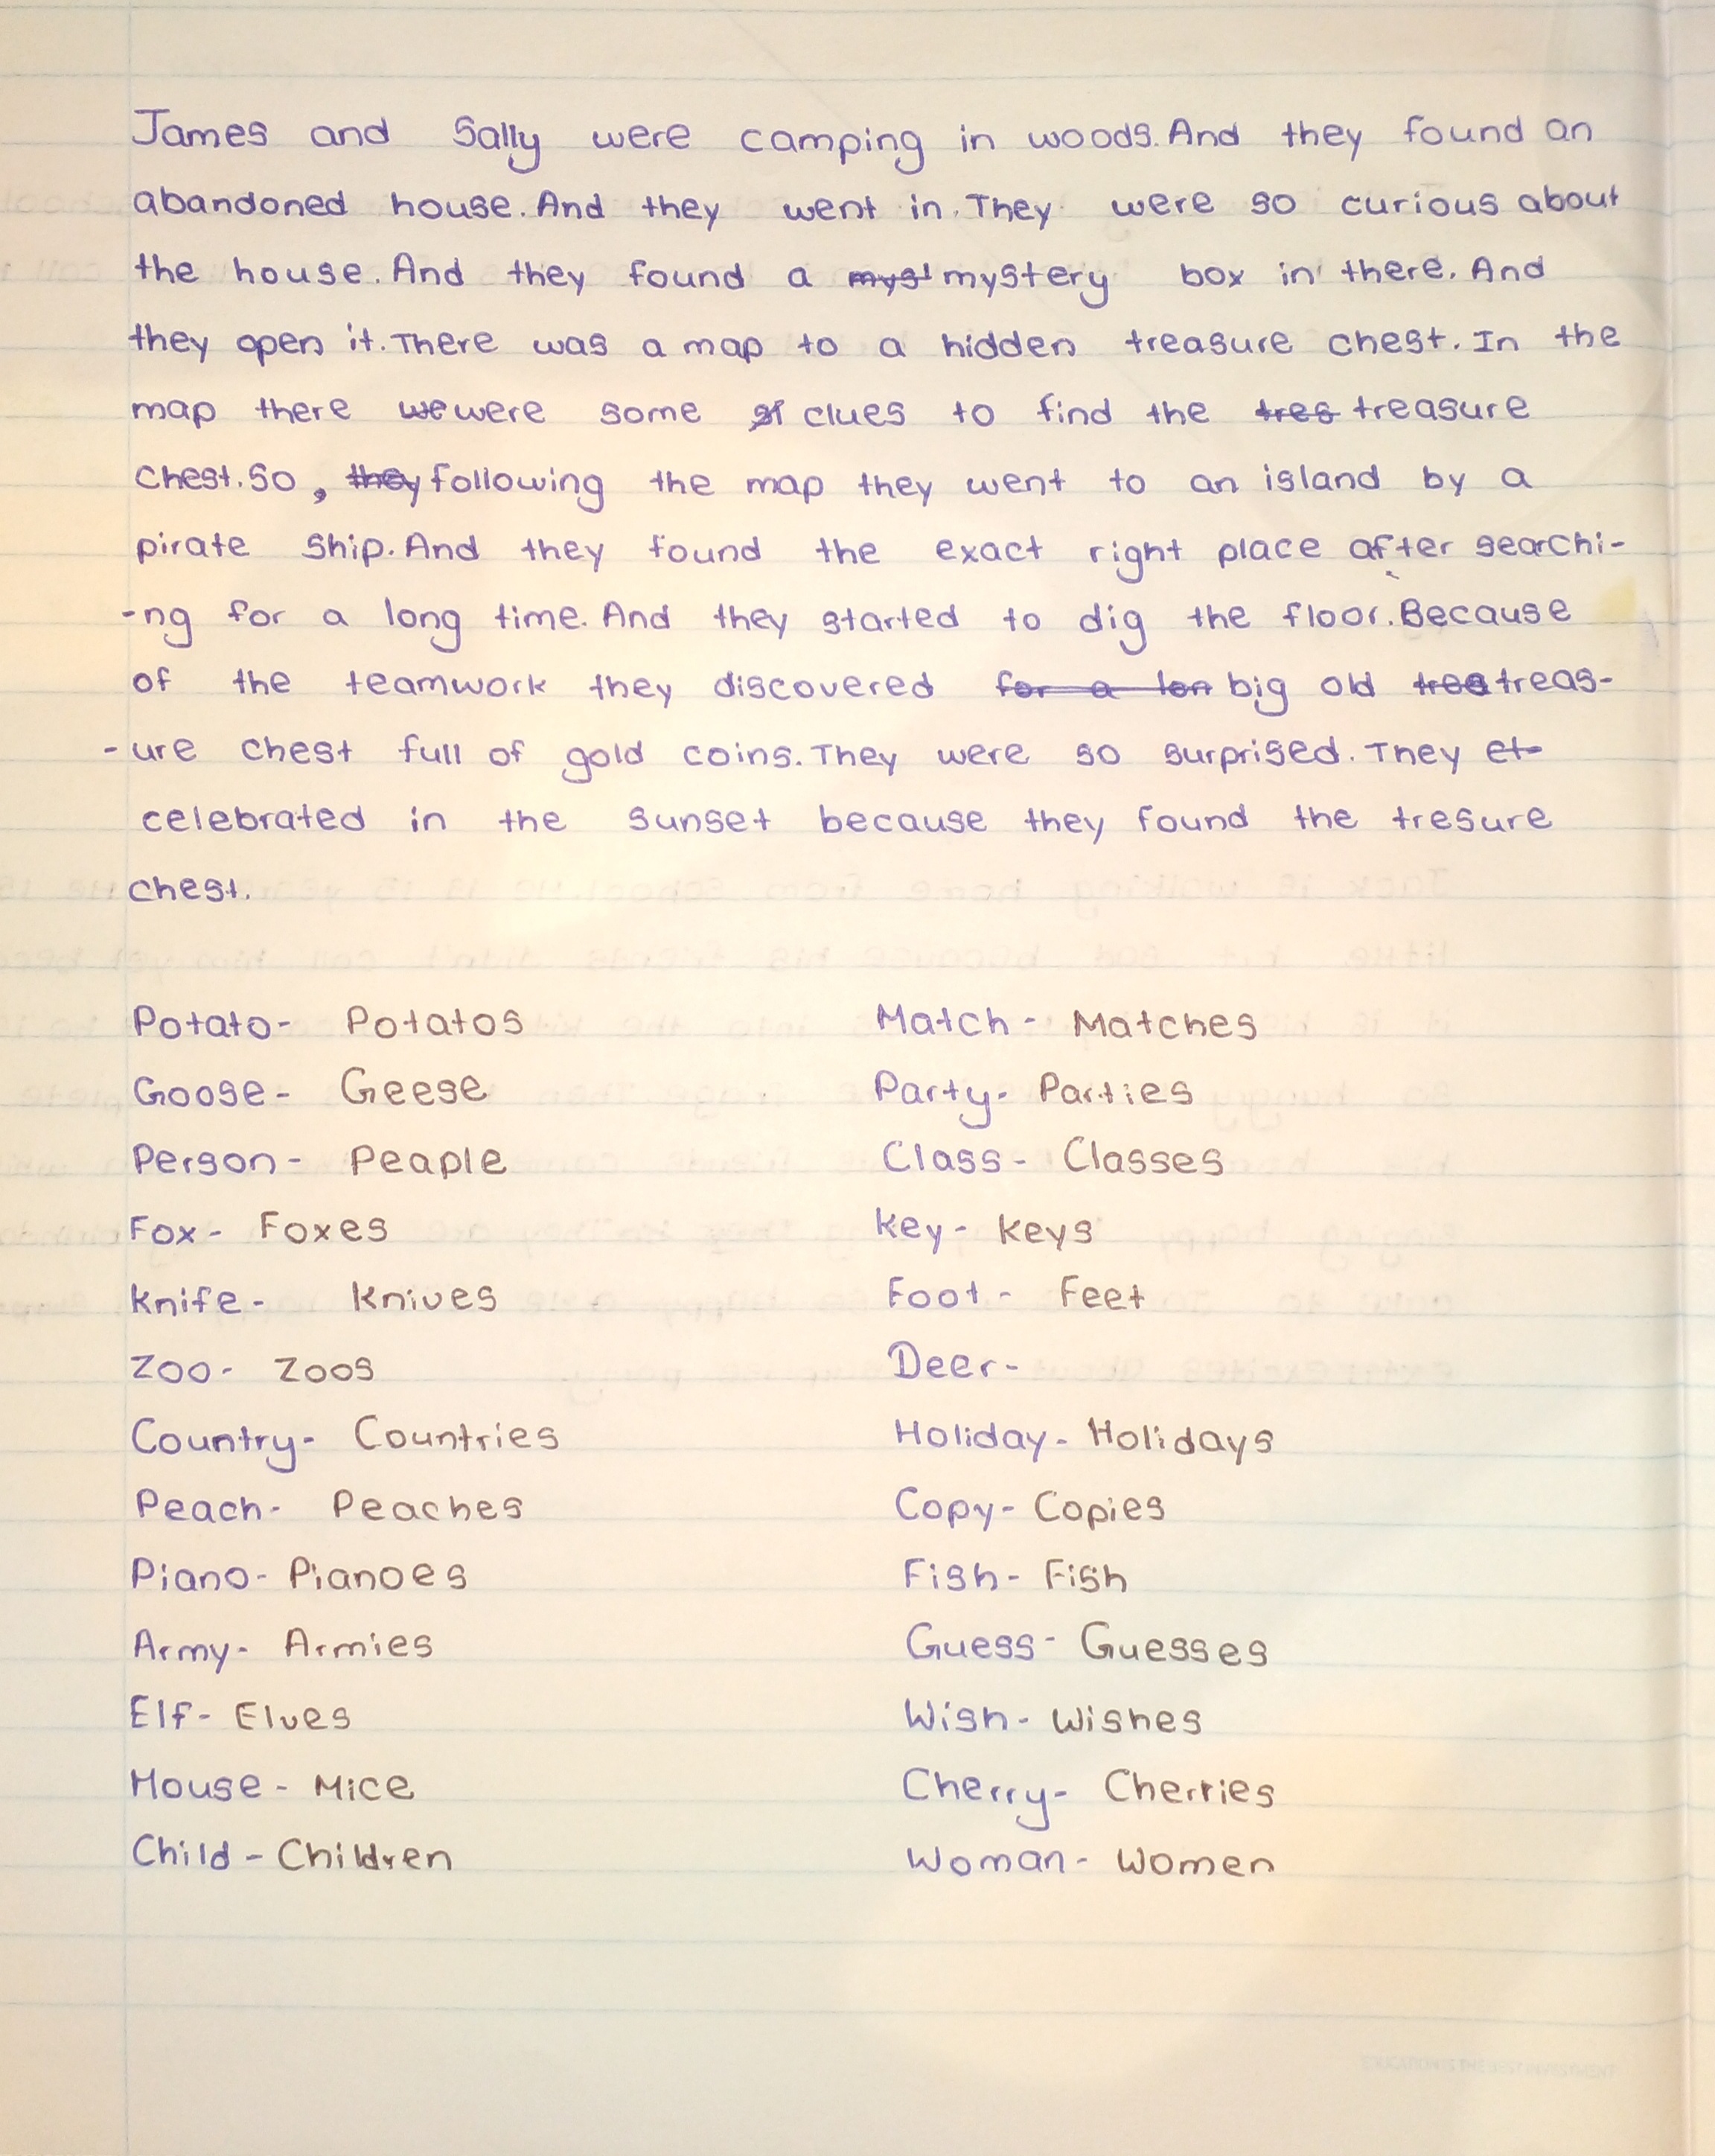 James and Sally were camping in woods. And they found an
abandoned house. And they went in. They were so curious about
the house. And they found a myst mystery box in there. And
they open it. There was a map to a hidden treasure chest. In the
map there we were some clues to find the tres treasure
chest. So, they following the map they went to an island by a
pirate ship. And they found the exact right place after searchi-
-ng for a long time. And they started to dig the floor. Because
of the teamwork they discovered for a lon big old trea treas-
-ure chest full of gold coins. They were so surprised. They
celebrated in the sunset because they found the tresure
chest.
Potato- Potatos
Goose- Geese
Person- Peaple
Fox- Foxes
Knife- Knives
Zoo- Zoos
Country- Countries
Peach- Peaches
Piano- Pianoes
Army- Armies
Elf- Elves
Mouse- Mice
Child- Children
Match- Matches
Party- Parties
Class- Classes
Key- Keys
Foot- Feet
Deer-
Holiday- Holidays
Copy- Copies
Fish- Fish
Guess- Guesses
Wish- Wishes
Cherry- Cherries
Woman- Women